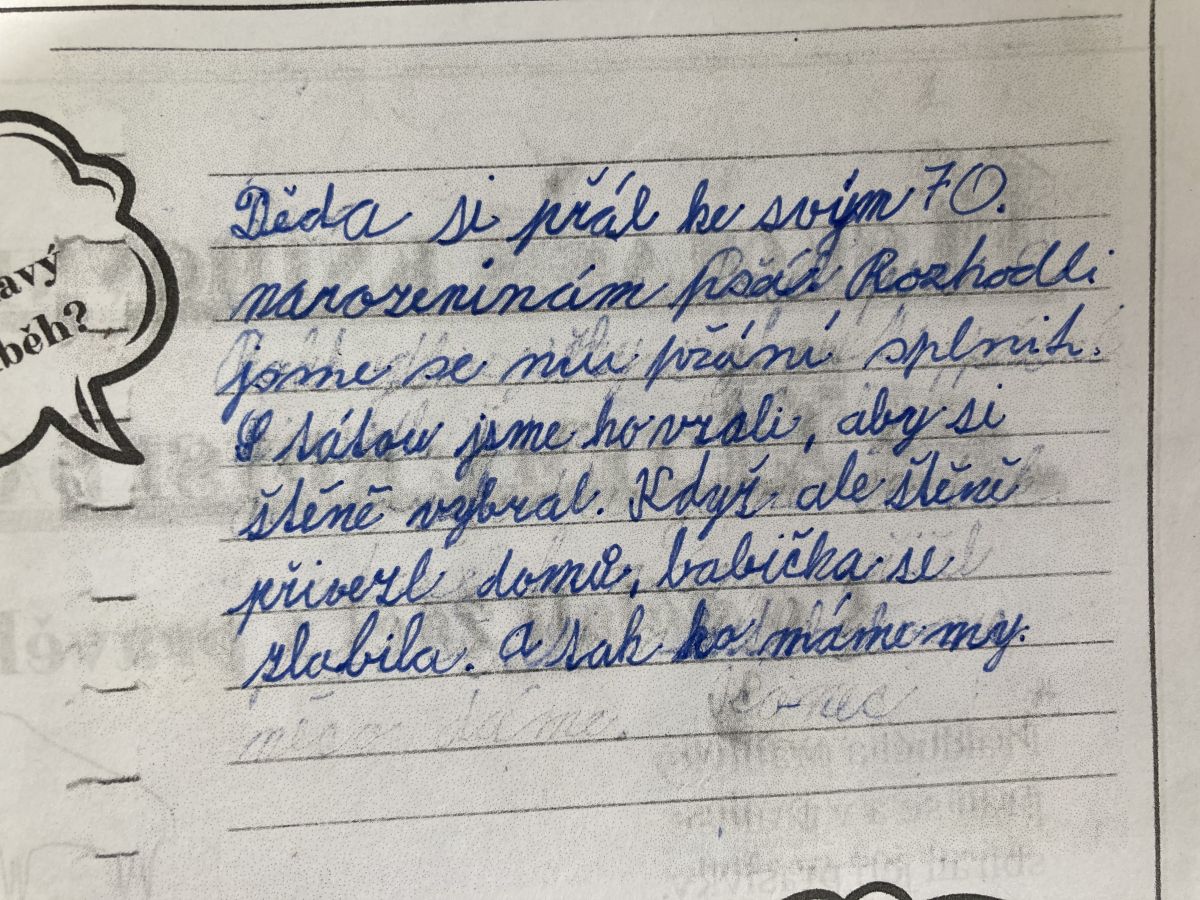 avý
běh?
Děda si přál ke svým 70.
narozeninám psa. Rozhodli
jsme se mu přání splnit.
S tátou jsme ho vzali, aby si
štěně vybral. Když ale štěně
přivezl domů, babička se
zlobila. A tak ho máme my.
Konec